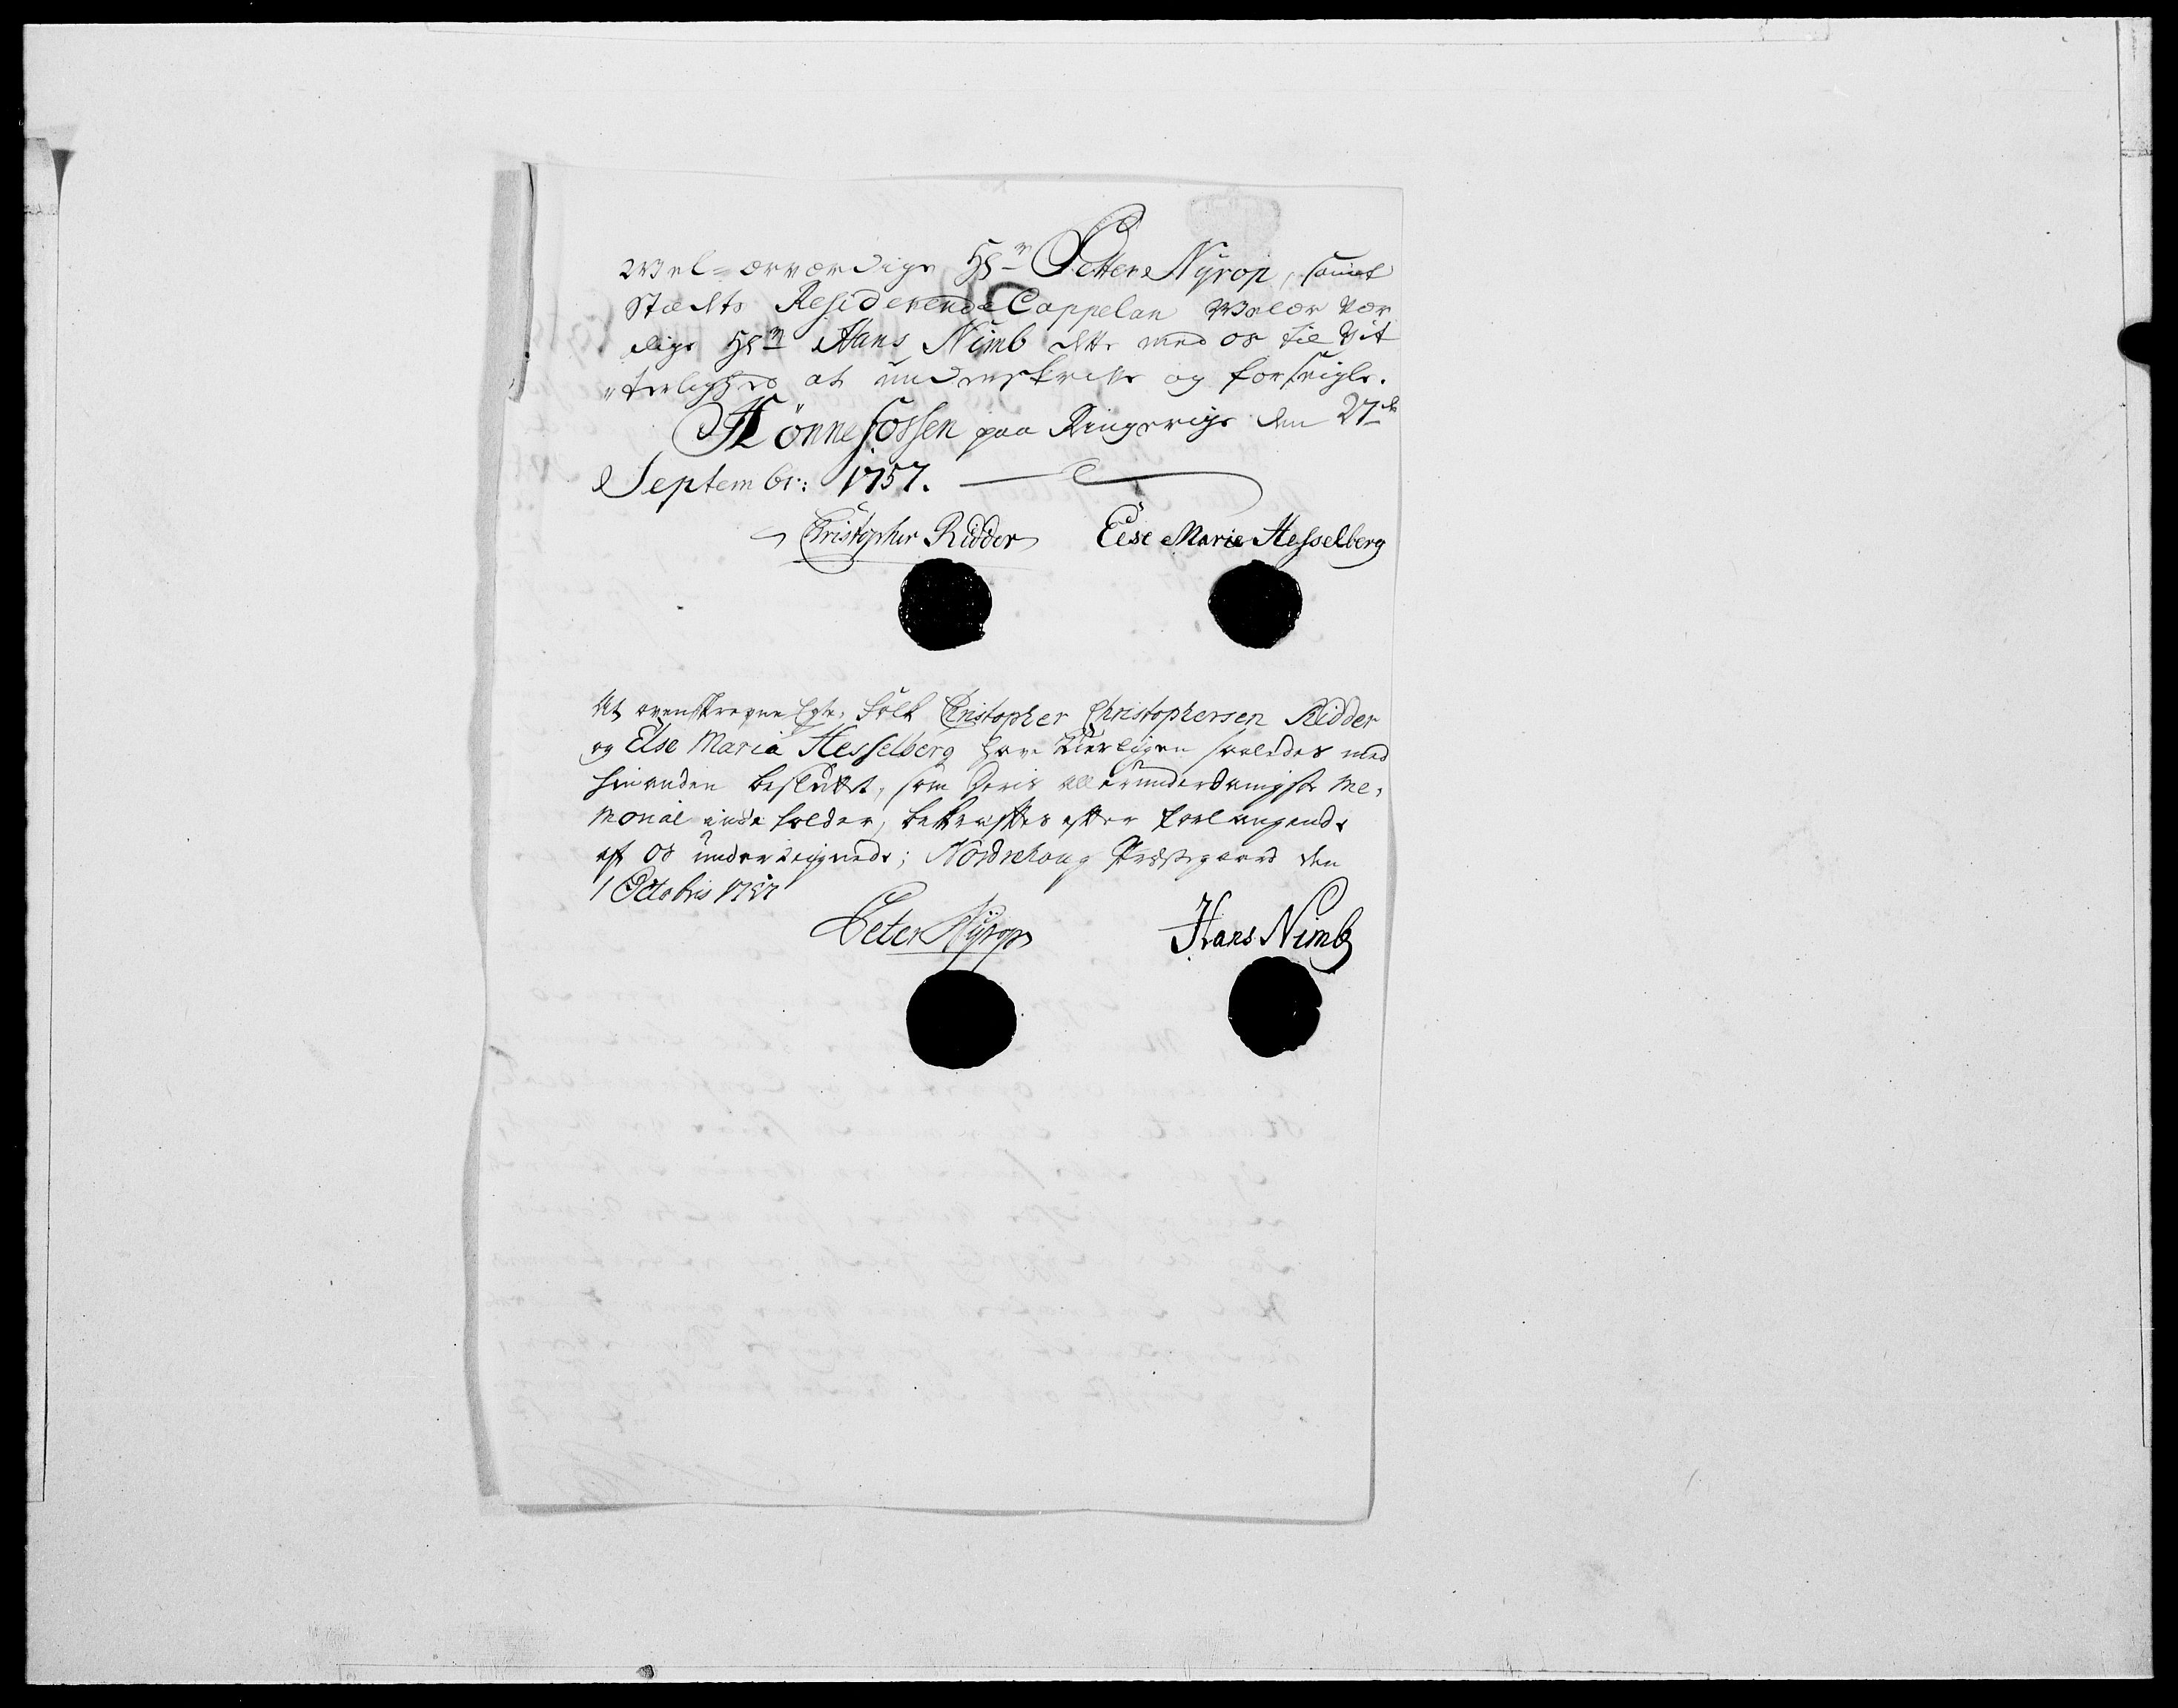 Wel-ærværdige Hr Petter Nÿrop, samt
Stædets Residerende Cappelan Velær vær
dige Hr Hans Nimb dette med os til Vit
"terlighed at underskrive og forseigle.
Hönnefossen paa Ringerige den 27de
Septembr: 1757.
Christopher Ridder Else Marie Hesselberg
At ovenskrevne Egte-Folk Christopher Christophersen Ridder
og Else Maria Hesselberg have kierligen saaledes med
hinanden besluttet, som deris allerunderdanigste Me,
morial inde holder, bekræftes efter forlangende
af os undertegnede; Nordrehoug Præstegaard den
1 Octobris 1757
Peter Nÿrop Hans Nimb